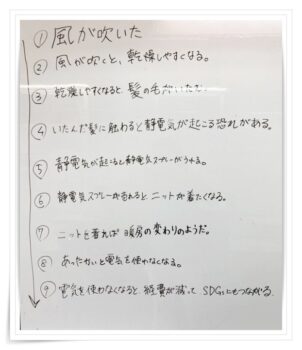 ① 風が吹いた
② 風が吹くと、乾燥しやすくなる。
③ 乾燥しやすくなると髪の毛がいたむ
④ いたんだ髪に触わると静電気が起こる恐れがある。
⑤ 静電気が起こると静電気スプレーがうれる。
⑥ 静電気スプレーが売れるとニットが着たくなる。
⑦ ニットを着れば暖房の変わりのようだ。
⑧ あったかいと電気を使わなくなる。
⑨ 電気を使わなくなると経費が減ってSDGsにもつながる。